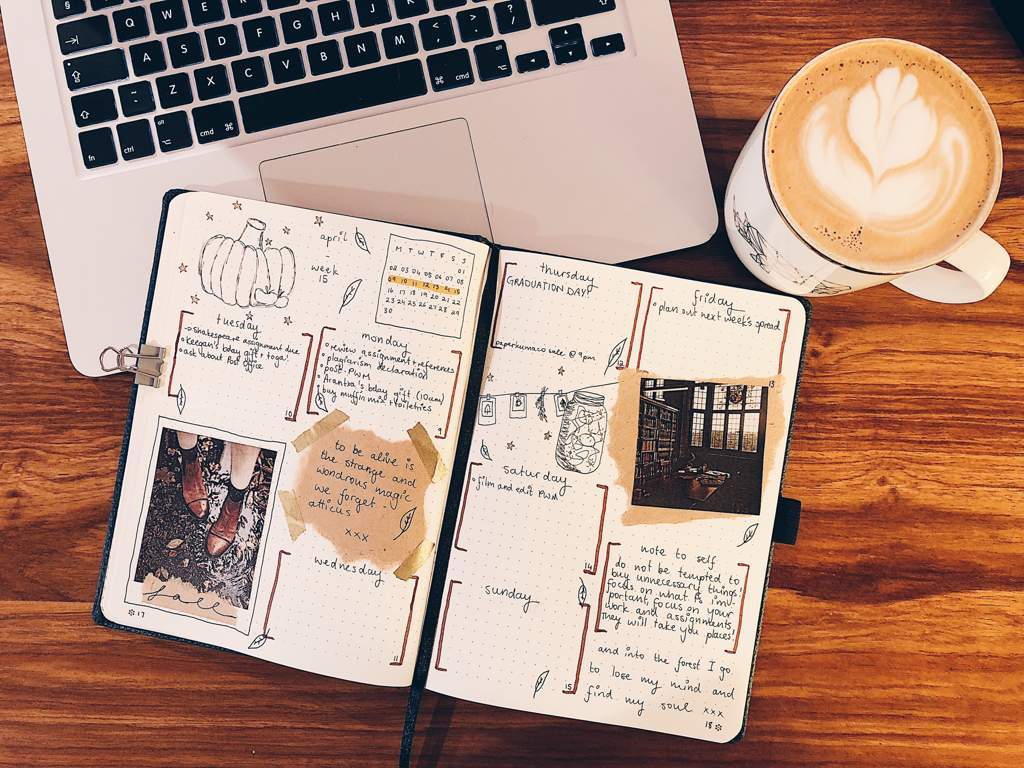 Q W E R
A S D F G H J K L
Z X C V B N M < , > . ? /
fn ctrl alt cmd ⌘ ⌘ cmd alt
april
week
15
M T W T F S S
01
02 03 04 05 06 07 08
09 10 11 12 13 14 15
16 17 18 19 20 21 22
23 24 25 26 27 28 29
30
tuesday
shakespeare assignment due
Keegan's bday gift + toga!
ask about Post office
10
monday
review assignment + references
plagiarism declaration
post PWM
bday gift (10am)
buy muffin mix + toiletries
9
to be alive is
the strange and
wondrous magic
we forget -
atticus
xxx
fall
wednesday
11
17
thursday
GRADUATION DAY!
paperkumaco sale @ 9pm
12
friday
plan out next week's spread
13
saturday
film and edit PWM
14
sunday
15
note to self
do not be tempted to
buy unnecessary things!
focus on what is im-
portant, focus on your
work and assignments,
they will take you places!
and into the forest I go
to lose my mind and
find my soul xxx
18